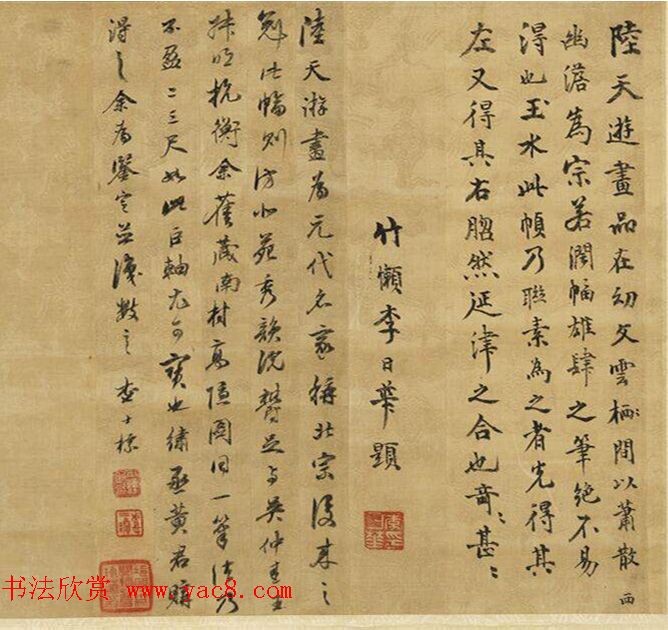 陸天游畫品在幼文雲栖間以蕭散
幽澹為宗若濶幅雄肆之筆絕不易
得也玉水此幀乃聯素為之者先得其
左又得其右脗然延津之合也奇甚奇甚
竹懶李日華題
陸天游畫為元代名家稱北宗後來之
此幅則仿北苑秀韻沈鬱足與吳仲圭
抗衡余舊藏南村高隱圖同一筆法乃
不盈二三尺如此巨軸尤可寶也繡丞黃君購
得之余為鑒定並識數之查士標
书法欣赏 www.yac8.com